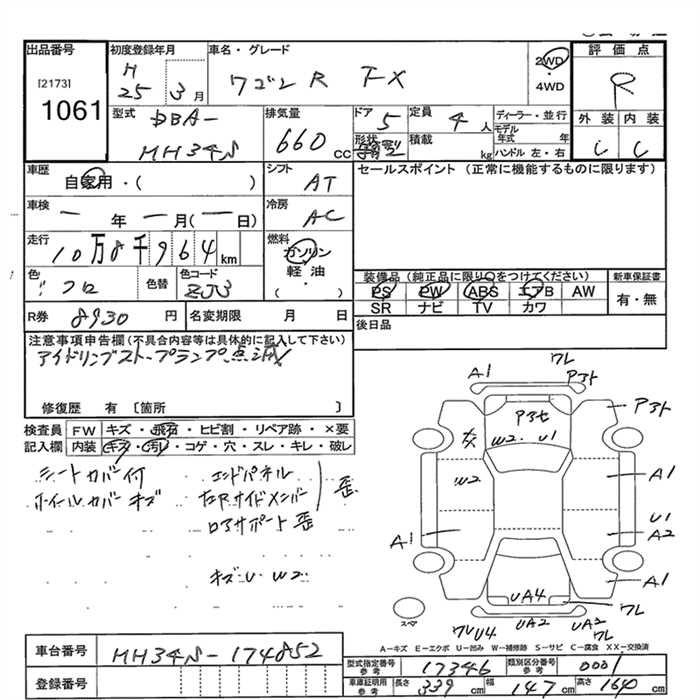 出品番号
[2173]
1061
初度登録年月
H 25年 3月
車名・グレード
ワゴンR FX
2WD
・
4WD
評価点
R
型式
DBA-
MH34S
排気量
660 cc
ドア 5
形状
定員 4人
積載 kg
ディーラー・並行
モデル年式 年
ハンドル 左・右
外装 内装
C C
車歴
自家用・( )
シフト
AT
セールスポイント (正常に機能するものに限ります)
車検
一年一月(一日)
冷房
AC
走行
10万8千964km
燃料
ガソリン
軽油・
( )
色
クロ
色替
色コード
ZJ3
装備品(純正品に限り○をつけてください)
PS PW ABS エアB AW
SR ナビ TV カワ
新車保証書
有・無
R券 8930円
名変期限 月 日
後日品
注意事項申告欄(不具合内容等は具体的に記入して下さい)
アイドリングストップランプ点滅
修復歴 有 〔箇所 〕
検査員記入欄
FW キズ・飛石・ヒビ割・リペア跡・×要
内装 キズ・汚レ・コゲ・穴・スレ・キレ・破レ
シートカバー付
ホイルカバーキズ
エンドパネル
左Rサイドメンバー
歪
ロアサポート歪
キズU W2
A1
ワレ
Pアト
Pアセ
Pアト
W2 U1
W2
A1
U1
A2
A1
A1
UA4
ワレ
ワレU4
UA2
UA2
ワレ
スペア
A-キズ E-エクボ U-凹み W-補修跡 S-サビ C-腐食 XX-交換済
車台番号
MH34S-174852
登録番号
型式指定番号 参考
17346
類別区分番号 参考
0001
車庫証明用 参考
長さ 339cm
幅 147cm
高さ 164cm